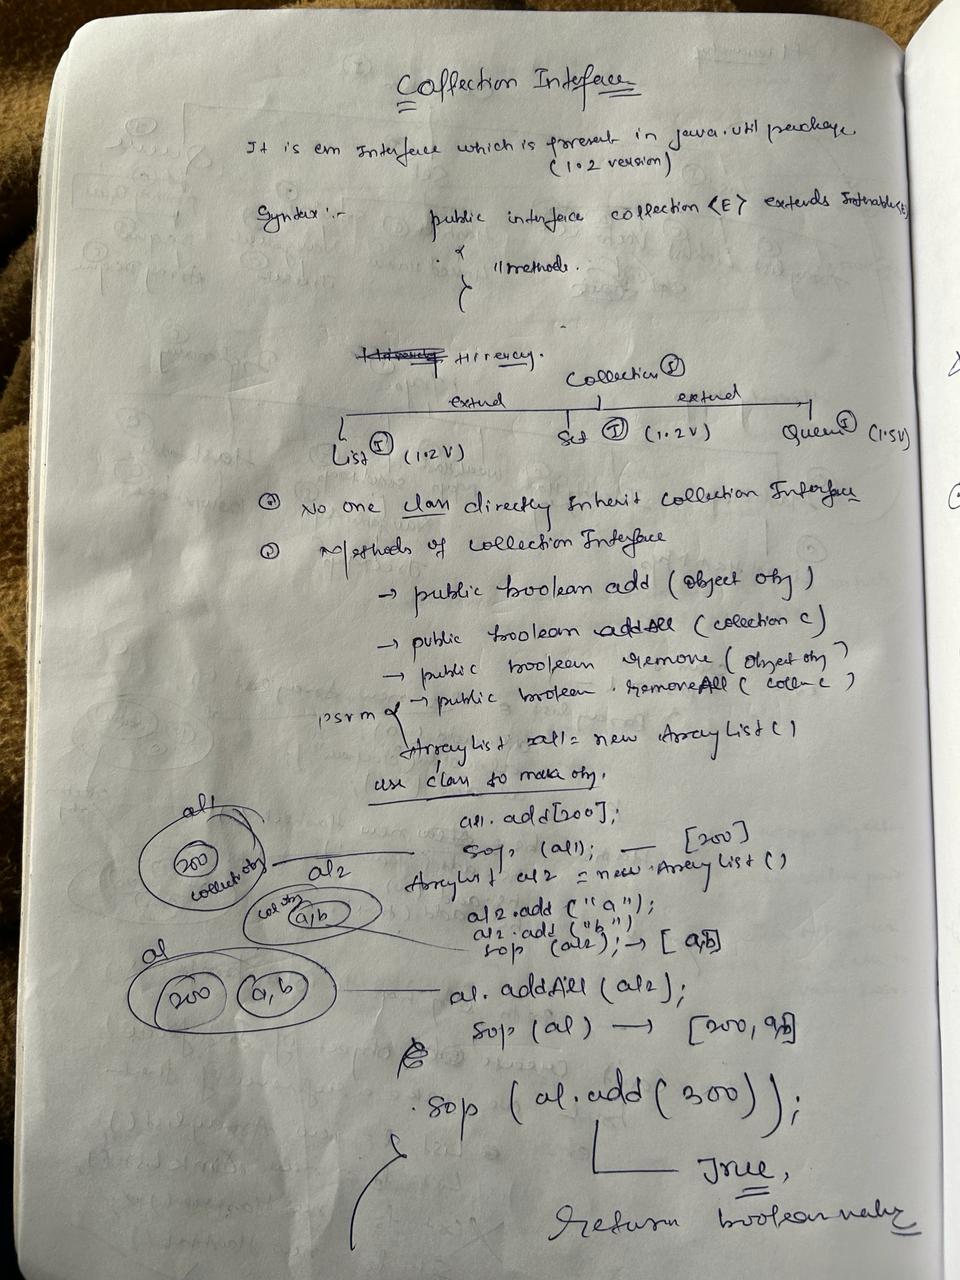 Collection Interface
It is an Interface which is present in java.util package.
(1.2 version)
Syntax :- public interface collection <E> extends Interable<E>
{
// methods.
}
Hirercy.
Collection (I)
extend extend
List (I) (1.2 V) Set (I) (1.2 V) Queue (I) (1.5V)
No one class directly Inherit collection Interface
Methods of collection Interface
→ public boolean add (object obj)
→ public boolean addAll (collection c)
→ public boolean remove (object obj)
→ public boolean removeAll ( c )
psvm {
ArrayList al1 = new ArrayList ()
use class to make obj.
al1. add[200];
al1
200
collection obj
sop (al1); — [200]
ArrayList al2 = new ArrayList ()
al2
col obj
a,b
al2.add ("a");
al2.add ("b")
sop (al2); → [a,b]
al
200 a,b
al. addAll (al2);
sop (al) → [200, a,b]
sop (al.add(300));
}
True,
Return boolean value